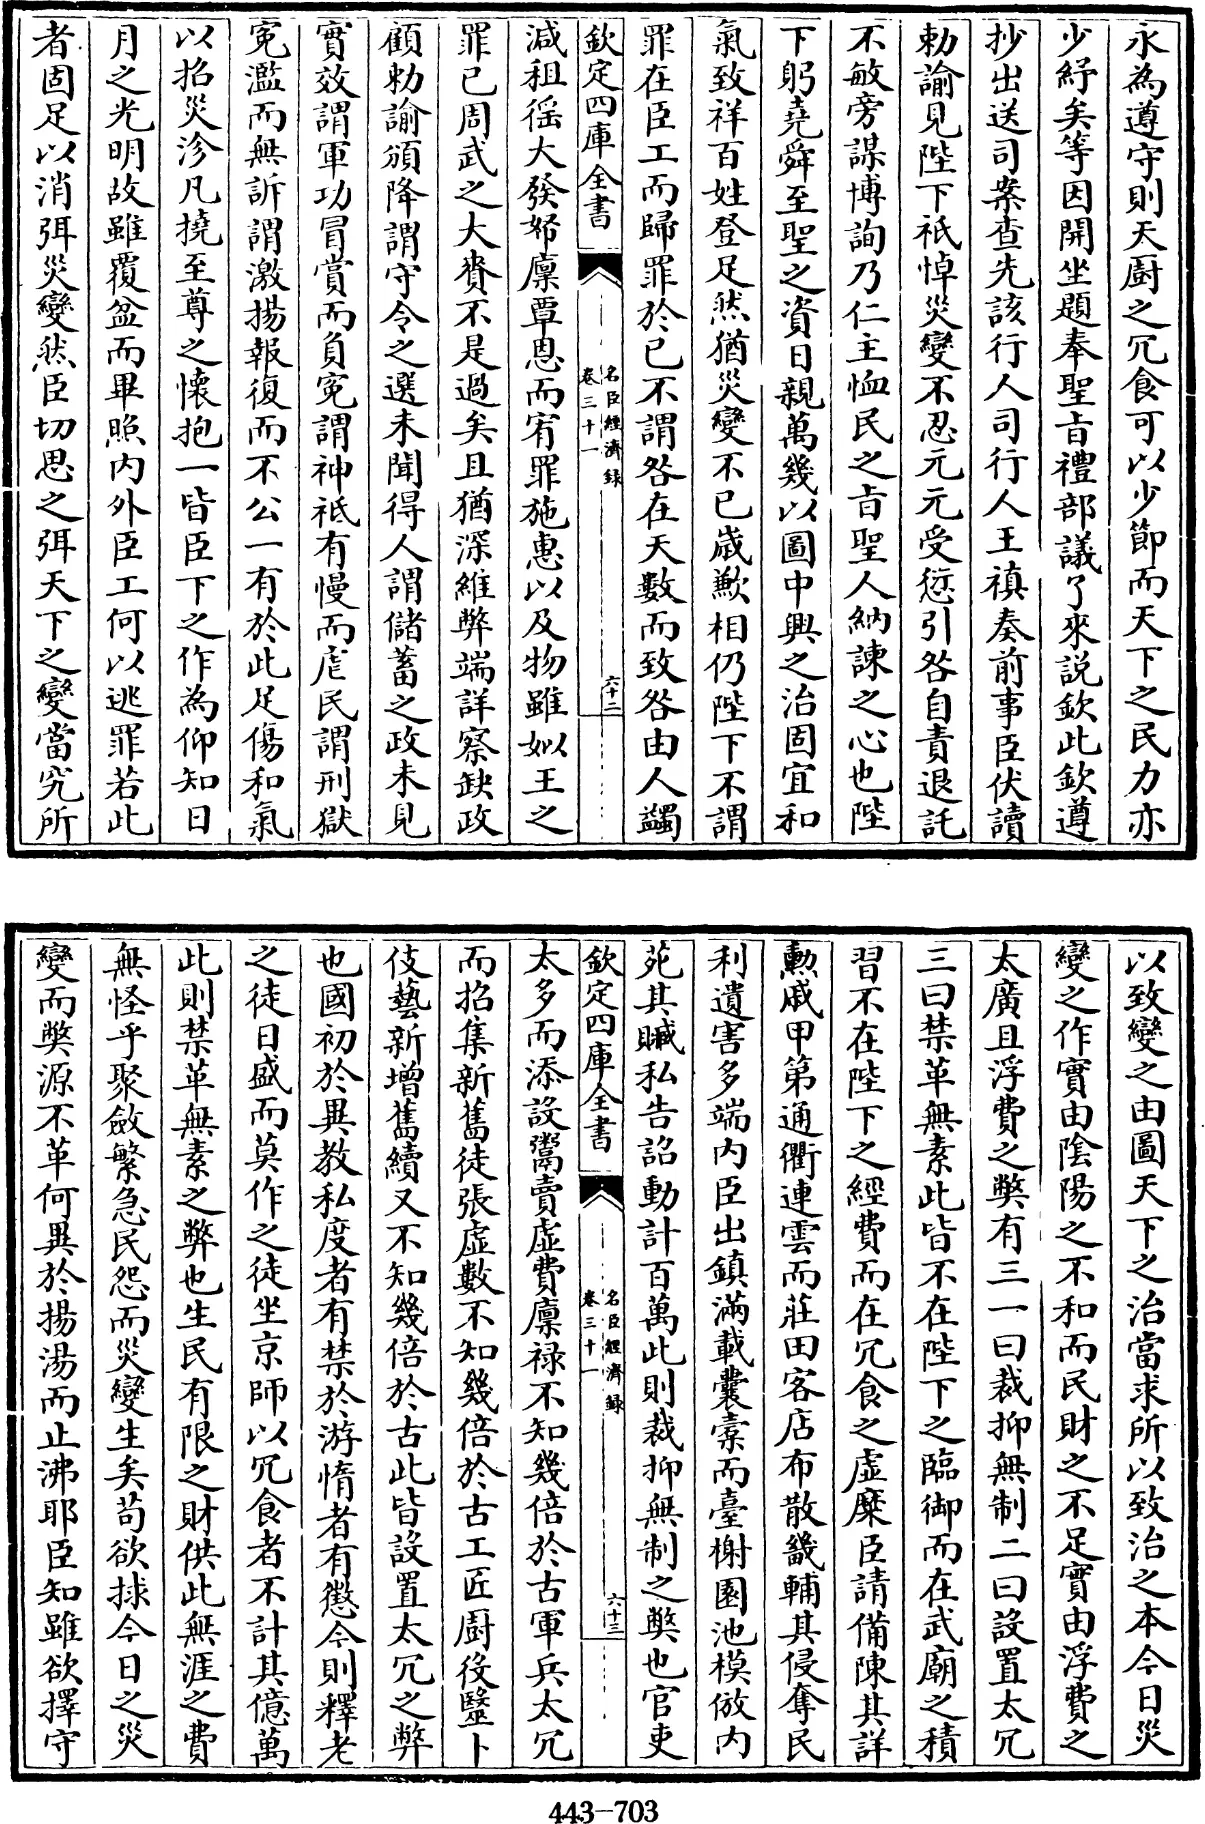 永為遵守則天厨之冗食可以少節而天下之民力亦
少紓矣等因開坐題奉聖旨禮部議了來説欽此欽遵
抄出送司案查先該行人司行人王禎奏前事臣伏讀
勅諭見陛下祇悼災變不忍元元受愆引咎自責退託
不敏旁謀博詢乃仁主恤民之旨聖人納諫之心也陛
下躬堯舜至聖之資日親萬幾以圖中興之治固宜和
氣致祥百姓登足然猶災變不已歳歉相仍陛下不謂
罪在臣工而歸罪於已不謂咎在天數而致咎由人蠲
欽定四庫全書
名臣經濟録
卷三十一
六十二
減租徭大發帑廪覃恩而宥罪施惠以及物雖如王之
罪已周武之大賚不是過矣且猶深維弊端詳察缺政
顧勅諭頒降謂守令之選未聞得人謂儲蓄之政未見
實效謂軍功冒賞而負寃謂神祗有慢而虐民謂刑獄
寃濫而無訴謂激揚報復而不公一有於此足傷和氣
以招災沴凡撓至尊之懐抱一皆臣下之作為仰知日
月之光明故雖覆盆而畢照内外臣工何以逃罪若此
者固足以消弭災變然臣切思之弭天下之變當究所
以致變之由圖天下之治當求所以致治之本今日災
變之作實由陰陽之不和而民財之不足實由浮費之
太廣且浮費之獘有三一曰裁抑無制二曰設置太冗
三曰禁革無素此皆不在陛下之臨御而在武廟之積
習不在陛下之經費而在冗食之虚糜臣請備陳其詳
勲戚甲第通衢連雲而莊田客店布散畿輔其侵奪民
利遺害多端内臣出鎮滿載囊橐而臺榭園池模倣内
苑其贓私告詔動計百萬此則裁抑無制之獘也官吏
欽定四庫全書
名臣經濟録
卷三十一
六十三
太多而添設鬻賣虚費廪禄不知幾倍於古軍兵太冗
而招集新舊徒張虚數不知幾倍於古工匠厨役醫卜
伎藝新增舊續又不知幾倍於古此皆設置太冗之弊
也國初於異教私度者有禁於游惰者有懲今則釋老
之徒日盛而莫作之徒坐京師以冗食者不計其億萬
此則禁革無素之弊也生民有限之財供此無涯之費
無怪乎聚斂繁急民怨而災變生矣苟欲捄今日之災
變而獘源不革何異於揚湯而止沸耶臣知雖欲擇守
443-703